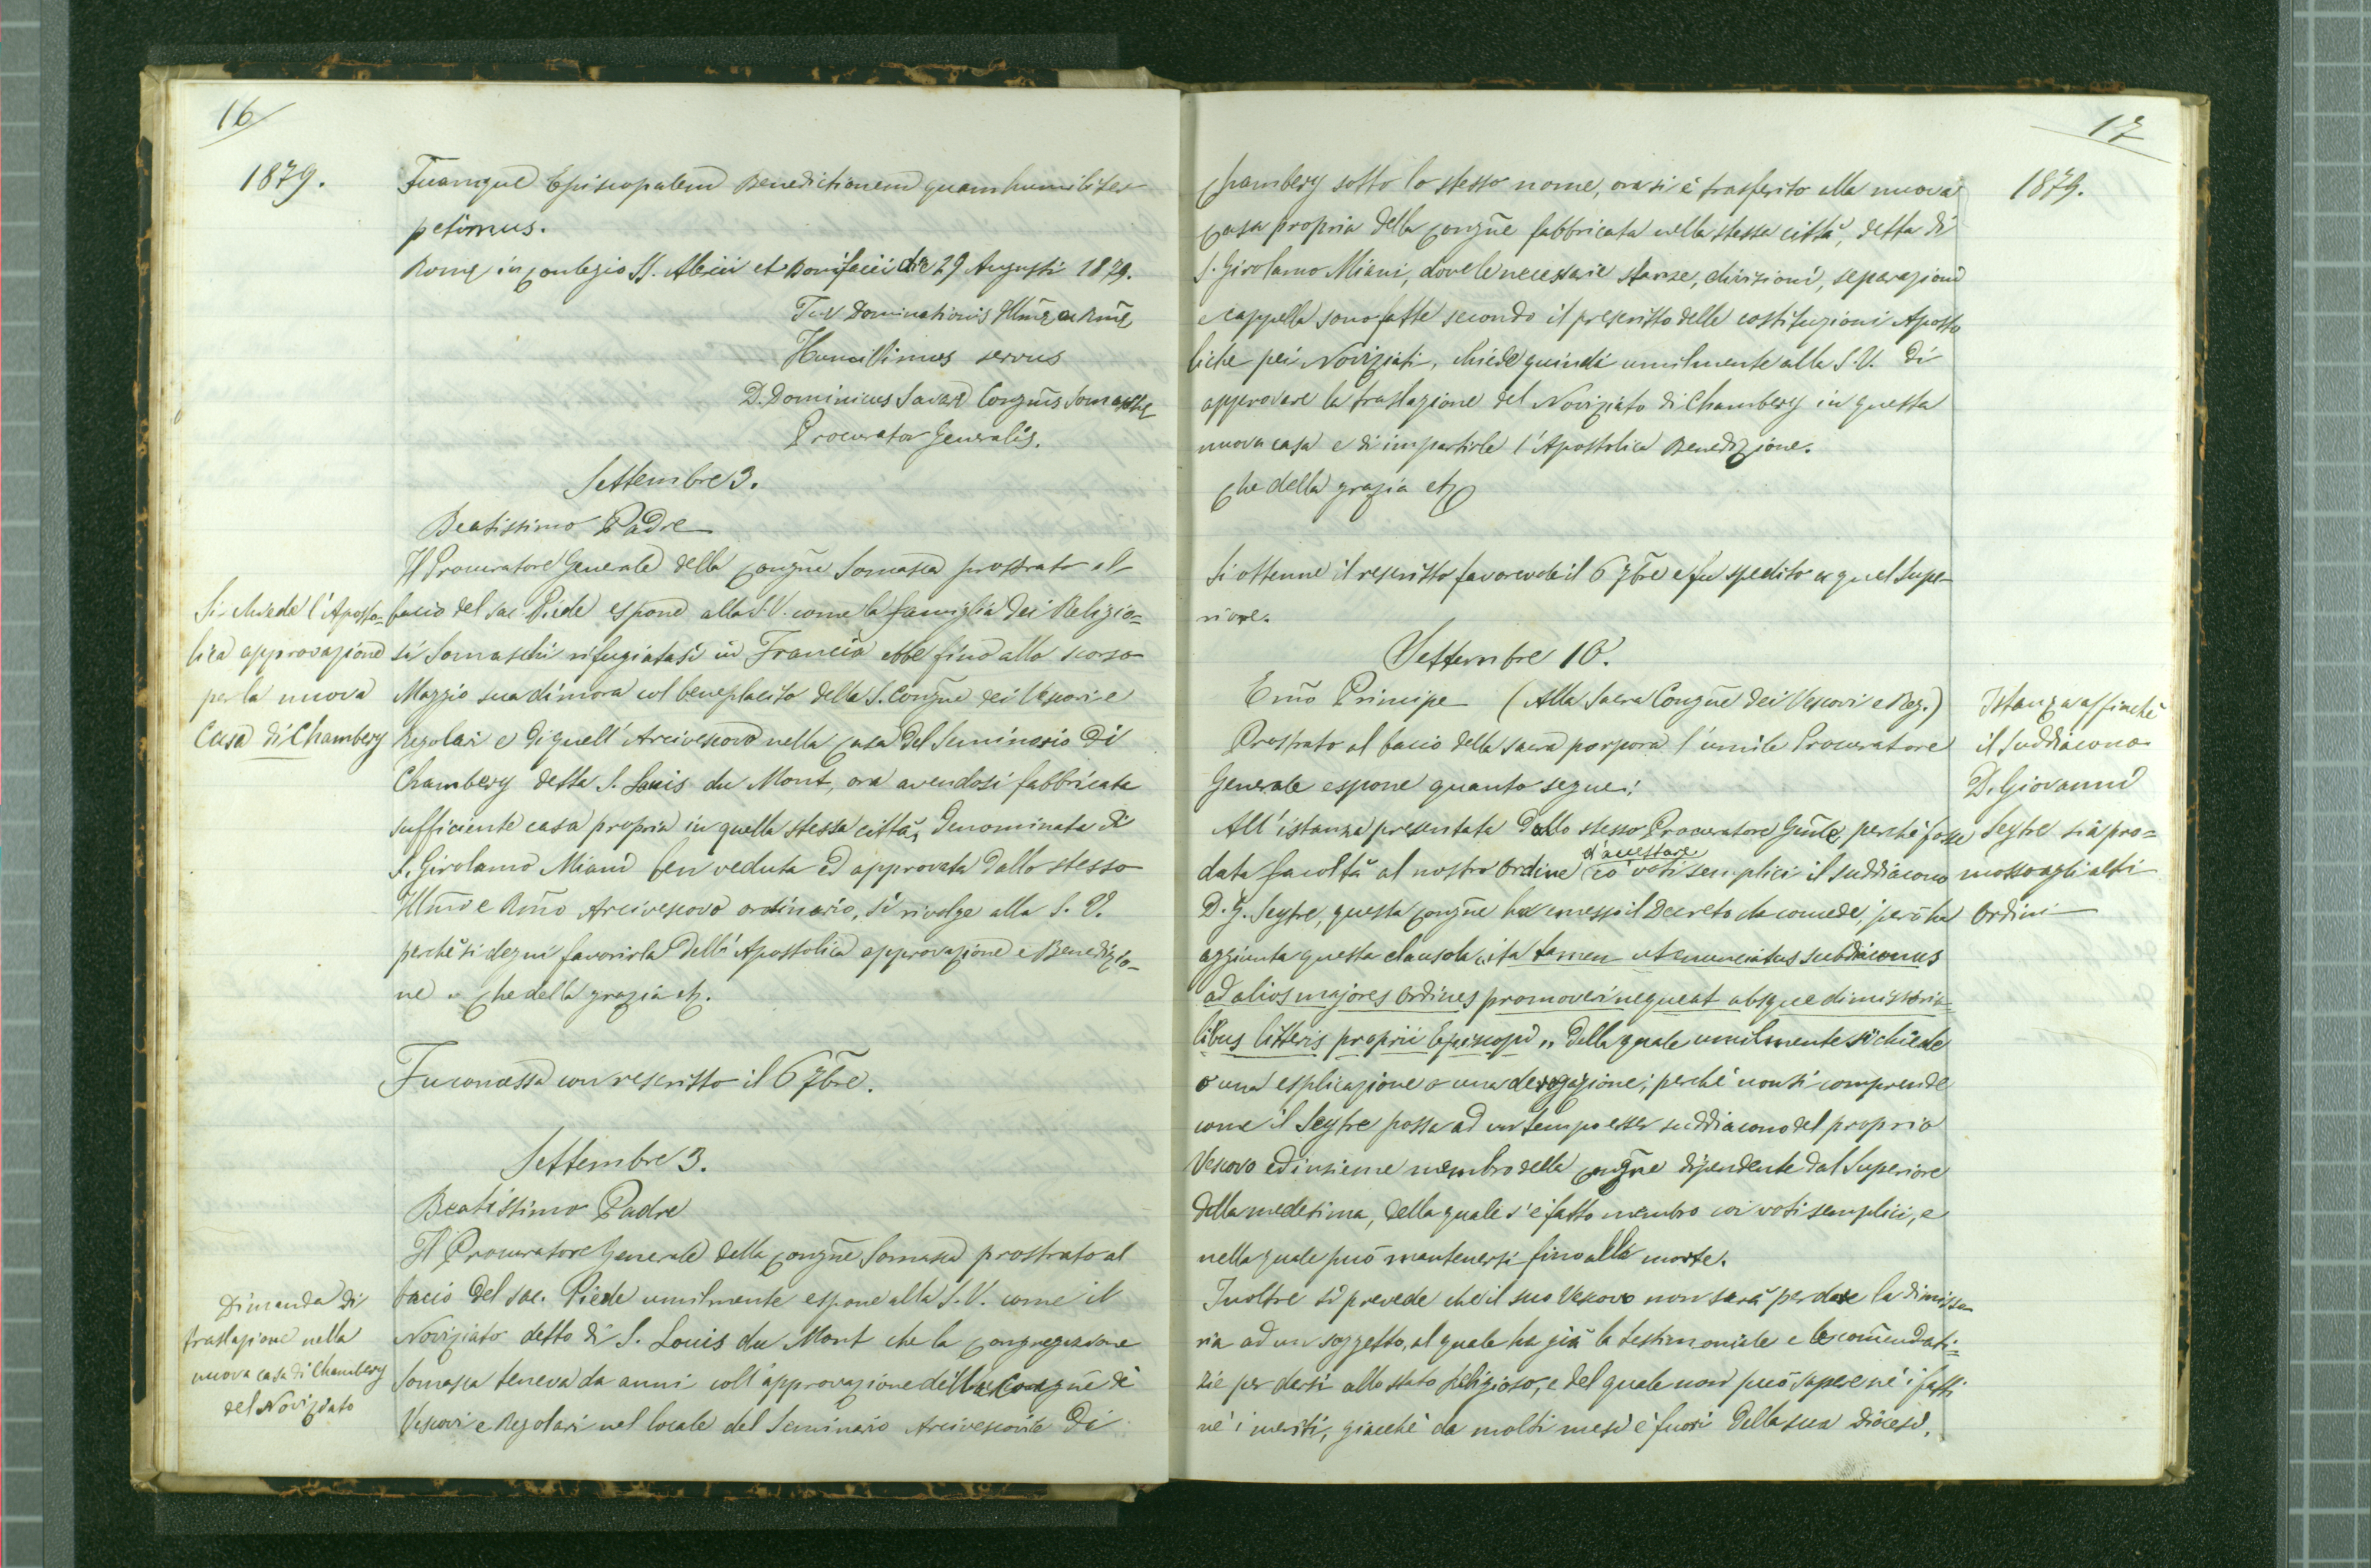 16
1879.
Tuamque Episcopalem Benedictionem quam humiliter
petimus.
Romę in Collegio SS. Alexii et Bonifacii die 29 Augusti 1879.
Tuę Dominationis Illm̃ę ac Rm̃ę
Humillimus servus
D. Dominicus Savarè Congñis Somaschę
Procurator Generalis.
Settembre 3.
Beatissimo Padre
Il Procuratore Generale della Congñe Somasca prostrato al
bacio del sac. Piede espone alla S.V. come la famiglia dei Religio=
si Somaschi rifugiatasi in Francia ebbe fino allo scorso
Maggio sua dimora col beneplacito della S. Congñe dei Vescovi e
Regolari e di quell' Arcivescovo nella casa del Seminario di
Chambery detta S. Louis du Mont, ora avendosi fabbricata
sufficiente casa propria in quella stessa città, denominata di
S. Girolamo Miani ben veduta ed approvata dallo stesso
Illm̃o e Rm̃o Arcivescovo ordinario, si rivolge alla S. V.
perchè si degni favorirla dell' Apostolica approvazione e Benedizio-
ne. Che della grazia etc.
Si chiede l'Aposto=
lica approvazione
per la nuova
Casa di Chambery
Fu concessa con rescritto il 6 7bre.
Settembre 3.
Beatissimo Padre
Il Procuratore Generale della Congñe Somasca prostrato al
bacio del sac. Piede umilmente espone alla S.V. come il
Noviziato detto di S. Louis du Mont che la Congregazione
Somasca teneva da anni coll'approvazione della Congñe di
Vescovi e Regolari nel locale del Seminario Arcivescovile di
Dimanda di
traslazione nella
nuova casa di Chambery
del Noviziato
17
1879.
Chambery sotto lo stesso nome, ora si è trasferito alla nuova
Casa propria della Congñe fabbricata nella stessa città, detta di
S. Girolamo Miani, dove le necessarie stanze, divisioni, separazioni
e cappella sono fatte secondo il prescritto delle costituzioni Aposto
liche pei Noviziati, chiede quindi umilmente alla S.V. di
approvare la traslazione del Noviziato di Chambery in questa
nuova casa e di impartirle l'Apostolica Benedizione.
Che della grazia etc
Si ottenne il rescritto favorevole il 6 7bre e fu spedito a quel Supe-
riore.
Settembre 10.
Em̃o Principe (Alla Sacra Congñe dei Vescovi e Reg.)
Prostrato al bacio della sacra porpora l'umile Procuratore
Generale espone quanto segue:
All'istanza presentata dallo stesso Procuratore Gñle perchè fosse
data facoltà al nostro Ordine d'accettare co' voti semplici il suddiacono
D. G. Seytre, questa Congñe ha emesso il Decreto che concede, però ha
aggiunta questa clausola "ita tamen ut enunciatus subdiaconus
ad alios majores Ordines promoveri nequeat absque dimissoria-
libus litteris proprii Episcopi" della quale umilmente si chiede
o una esplicazione o una derogazione; perchè non si comprende
come il Seytre possa ad un tempo esser suddiacono del proprio
Vescovo ed insieme membro della Congñe dipendente dal Superiore
della medesima, della quale s'è fatto membro coi voti semplici, e
nella quale può mantenersi fino alla morte.
Inoltre si prevede che il suo Vescovo non sarà per dare la dimisso
ria ad un soggetto, al quale ha già la testimoniale e le com̃endati=
zie per darsi allo stato religioso, e del quale non può sapere nè i fatti
nè i meriti, giacchè da molti mesi è fuori della sua diocesi.
Istanza affinchè
il Suddiacono
D. Giovanni
Seytre sia pro=
mosso agli altri
Ordini